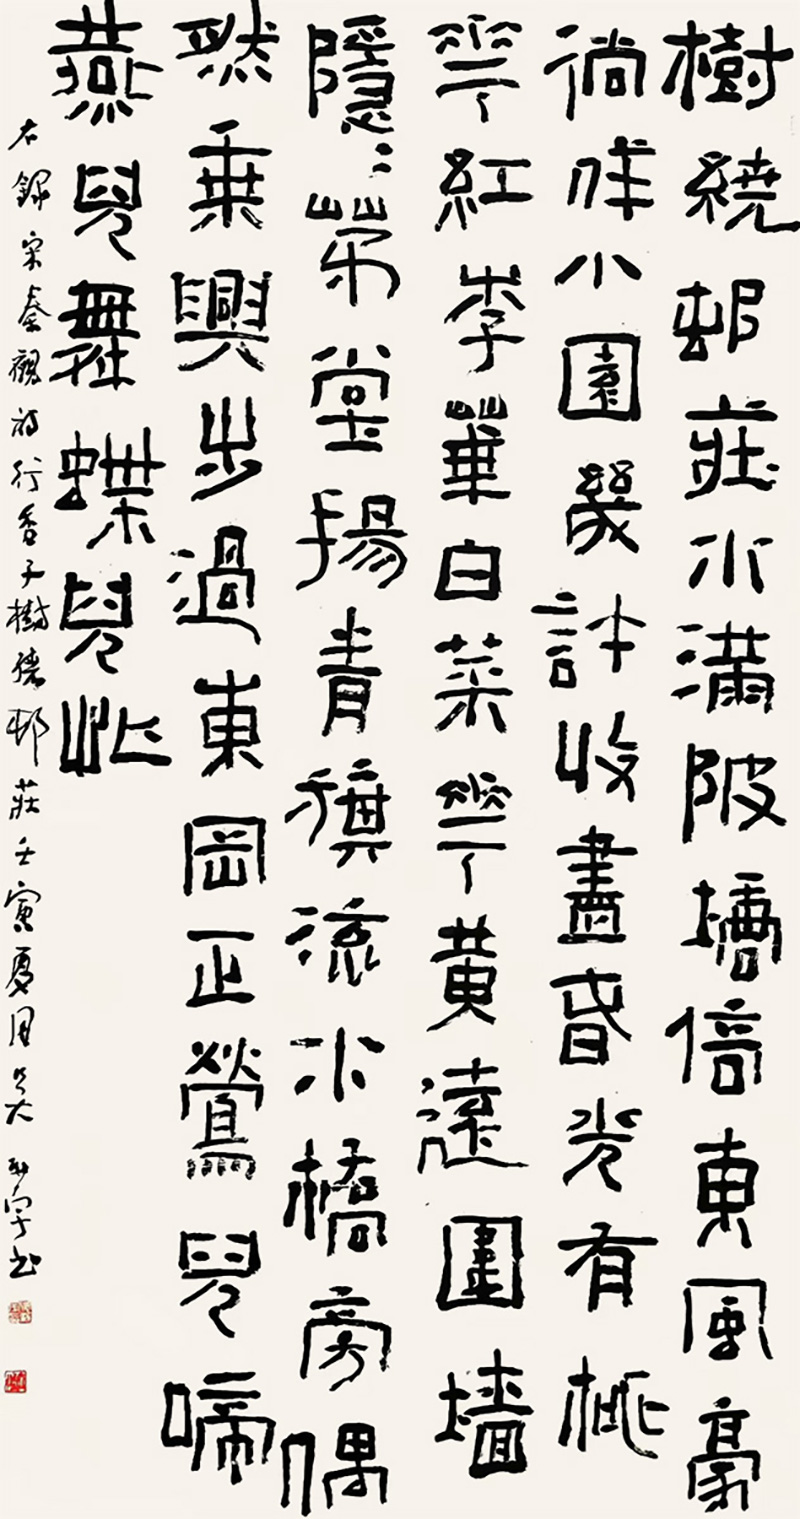 樹繞邨莊水滿陂塘倚東風豪
徜徉小園幾許收盡春光有桃
花紅李華白菜花黃遠圍墻
隱〻茅堂揚青旗流水橋旁偶
然乘興步過東岡正鶯兒啼
燕兒舞蝶兒忙
右錄宋秦觀詞行香子樹繞邨莊壬寅夏月吴書